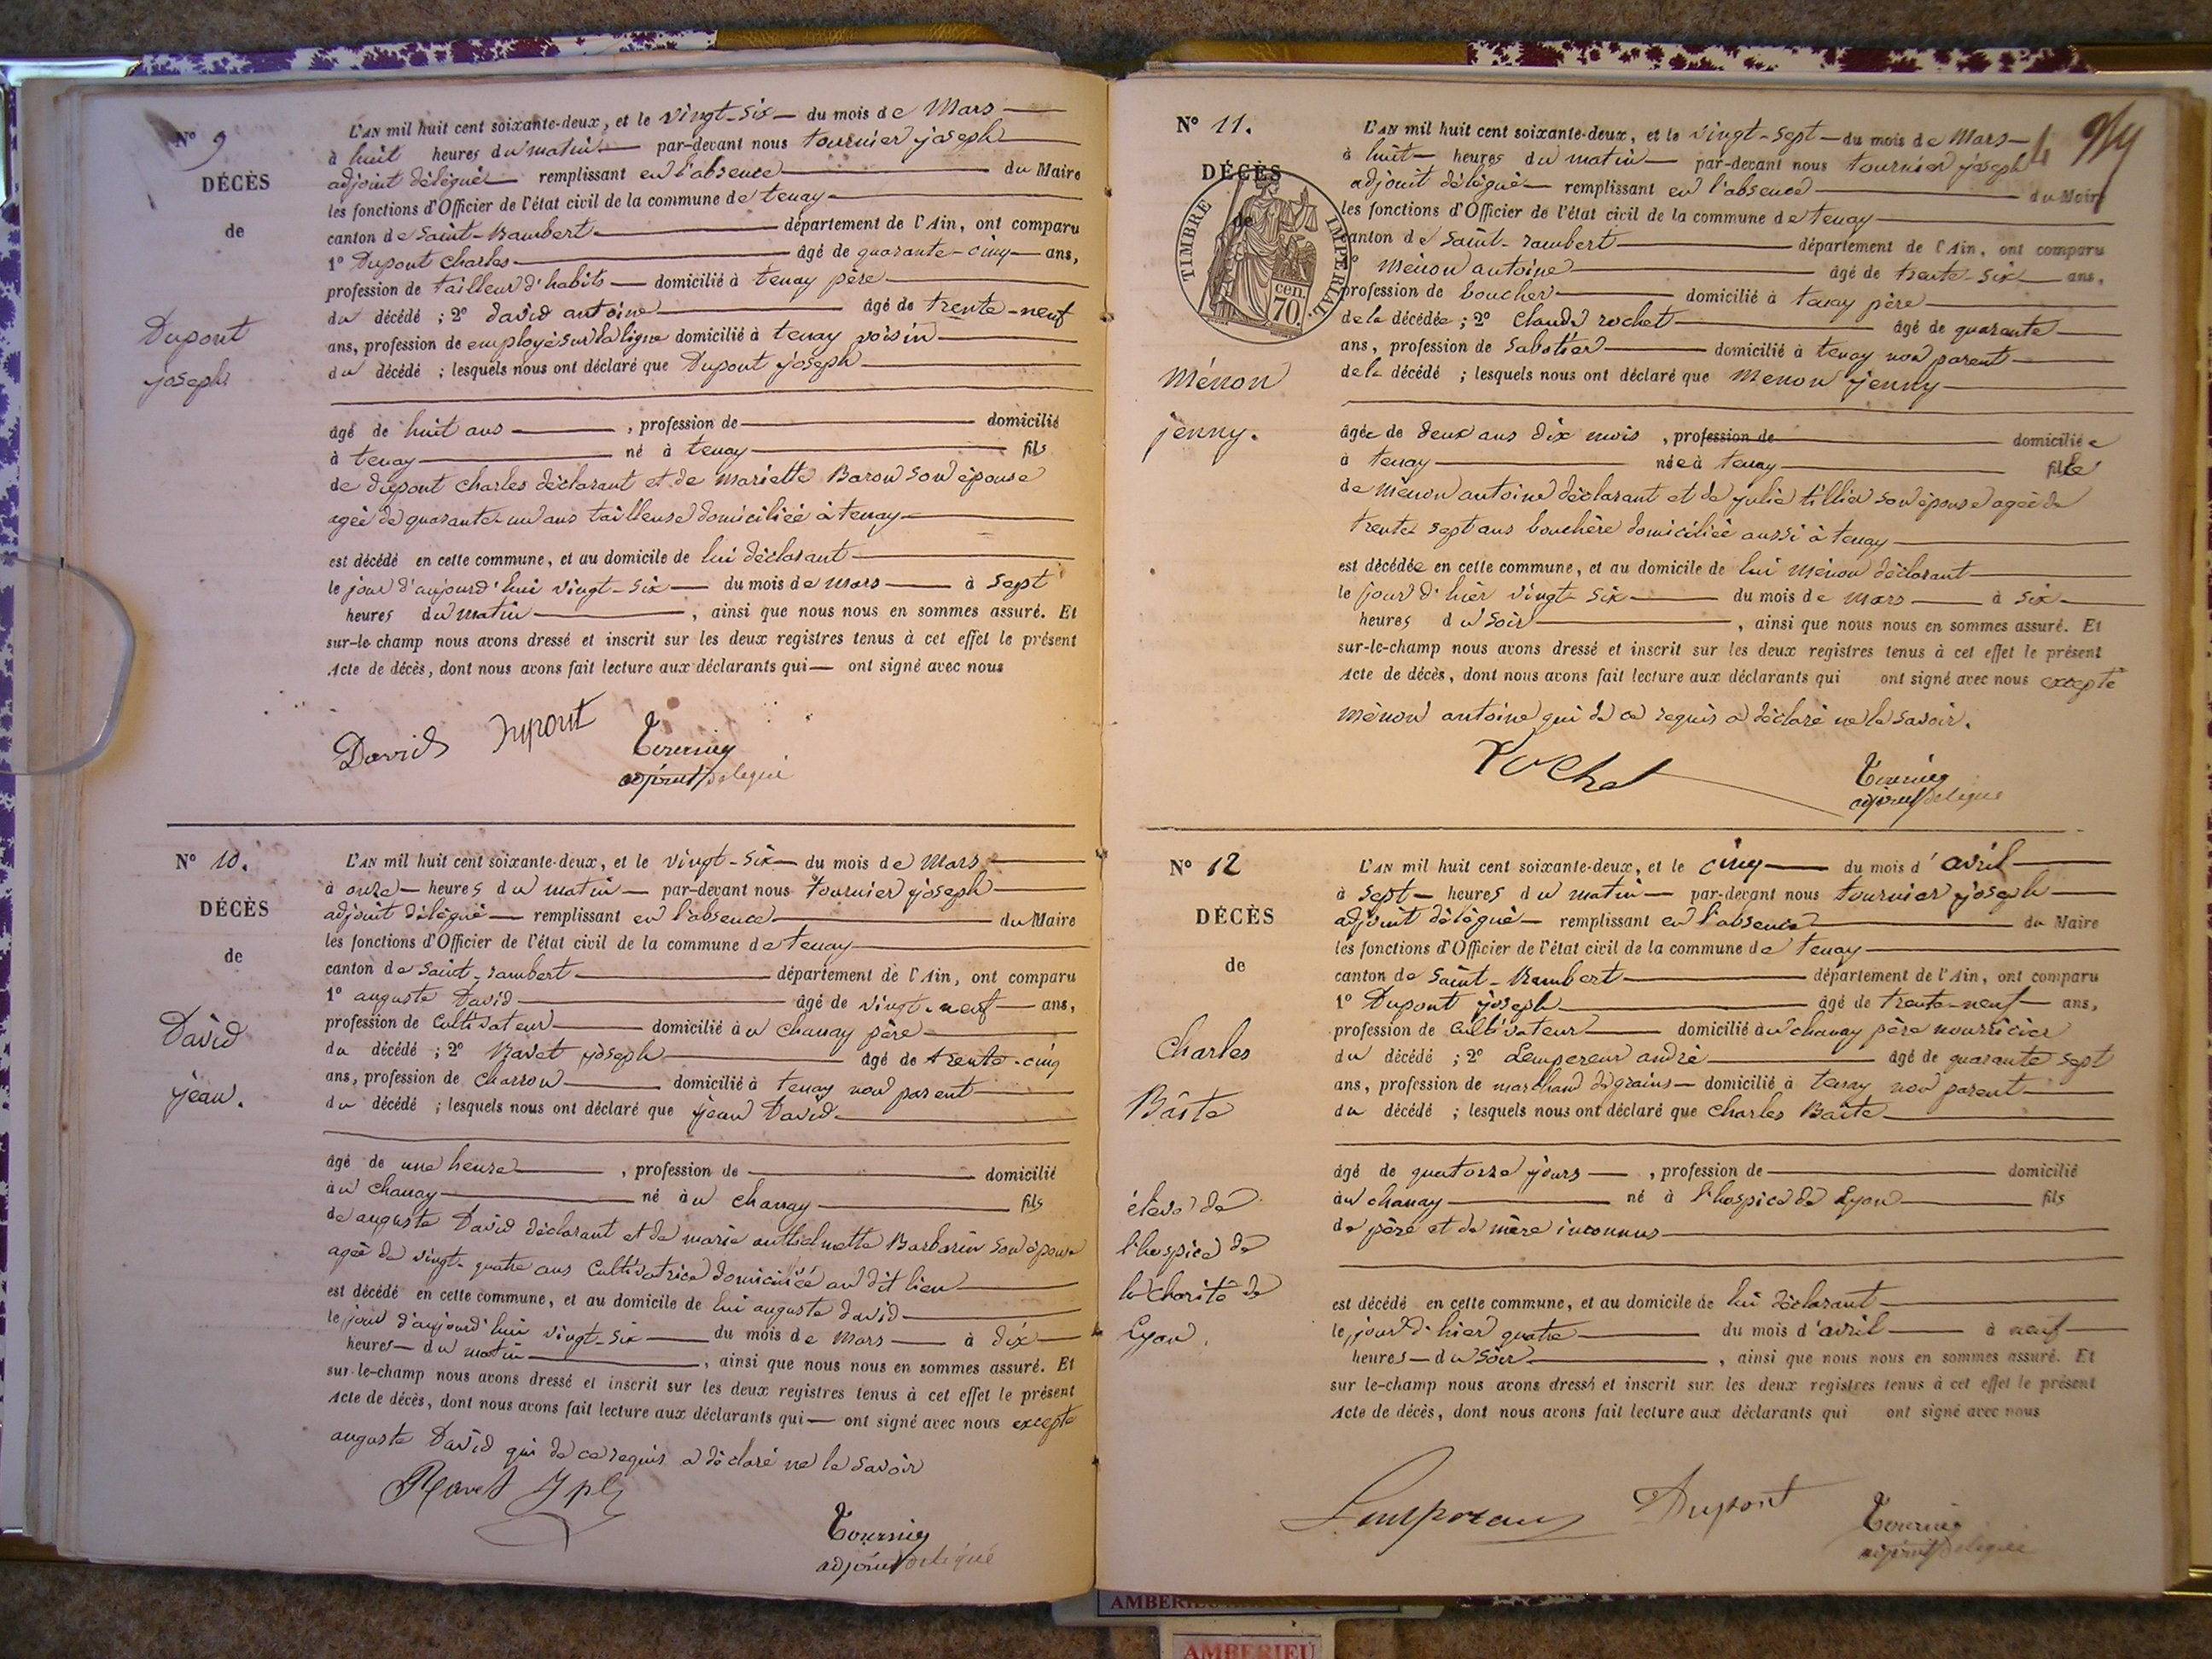 N° 9
DÉCÈS
de
Dupont
joseph
L'AN mil huit cent soixante-deux, et le vingt-six du mois de Mars
à huit heures du matin par-devant nous tournier joseph
adjoint délégué remplissant en l'absence du Maire
les fonctions d'Officier de l'état civil de la commune de tenay
canton de Saint-Rambert département de l'Ain, ont comparu
1° Dupont Charles âgé de quarante-cinq ans,
profession de tailleur d'habits domicilié à tenay père
du décédé ; 2° david antoine âgé de trente-neuf
ans, profession de employé sur la ligne domicilié à tenay voisin
du décédé ; lesquels nous ont déclaré que Dupont joseph
âgé de huit ans , profession de domicilié
à tenay né à tenay fils
de dupont charles déclarant et de mariette Baron son épouse
agée de quarante-un ans tailleuse domiciliée à tenay
est décédé en cette commune, et au domicile de lui déclarant
le jour d'aujourd'hui vingt-six du mois de mars à sept
heures du matin , ainsi que nous nous en sommes assuré. Et
sur-le champ nous avons dressé et inscrit sur les deux registres tenus à cet effet le présent
Acte de décès, dont nous avons fait lecture aux déclarants qui ont signé avec nous
David Dupont Tournier
adjoint délegué
N° 10.
DÉCÈS
de
David
jean.
L'AN mil huit cent soixante-deux, et le vingt-six du mois de Mars
à onze heures du matin par-devant nous tournier joseph
adjoint délégué remplissant en l'absence du Maire
les fonctions d'Officier de l'état civil de la commune de tenay
canton de Saint-rambert département de l'Ain, ont comparu
1° auguste David âgé de vingt-neuf ans,
profession de cultivateur domicilié à u chanay père
du décédé ; 2° Ravet joseph âgé de trente-cinq
ans, profession de charron domicilié à tenay non parent
du décédé ; lesquels nous ont déclaré que jean David
âgé de une heure , profession de domicilié
à u chanay né à u chanay fils
de auguste David déclarant et de marie anthelmette Barbarin son épouse
agée de vingt-quatre ans Cultivatrice domiciliée au dit lieu
est décédé en cette commune, et au domicile de lui auguste david
le jour d'aujourd'hui vingt-six du mois de mars à dix
heures du matin , ainsi que nous nous en sommes assuré. Et
sur-le-champ nous avons dressé et inscrit sur les deux registres tenus à cet effet le présent
Acte de décès, dont nous avons fait lecture aux déclarants qui ont signé avec nous excepté
auguste David qui de ce requis a déclaré ne le savoir
Ravet Jph
Tournier
adjoint delégué
N° 11.
DÉCÈS
de
TIMBRE IMPERIAL
cen.
70.
Ménon
jenny.
L'AN mil huit cent soixante-deux, et le vingt-sept du mois de Mars
à huit heures du matin par-devant nous tournier joseph
adjoint délégué remplissant en l'absence du Maire
les fonctions d'Officier de l'état civil de la commune de tenay
canton de Saint-rambert département de l'Ain, ont comparu
ménon antoine âgé de trente-six ans,
profession de boucher domicilié à tenay père
de la décédée ; 2° Claude rochet âgé de quarante
ans, profession de Sabotier domicilié à tenay non parent
de la décédé ; lesquels nous ont déclaré que menon jenny
âgée de deux ans dix mois , profession de domiciliée
à tenay née à tenay fille
de ménon antoine déclarant et de julie tillier son épouse agée de
trente sept ans bouchère domiciliée aussi à tenay
est décédée en cette commune, et au domicile de lui ménon déclarant
le jour d'hier vingt-six du mois de mars à six
heures du soir , ainsi que nous nous en sommes assuré. Et
sur-le-champ nous avons dressé et inscrit sur les deux registres tenus à cet effet le présent
Acte de décès, dont nous avons fait lecture aux déclarants qui ont signé avec nous excepté
ménon antoine qui de ce requis a déclaré ne le savoir.
Rochet Tournier
adjoint delegué
N° 12
DÉCÈS
de
Charles
Bâite
élève de
l'hospice de
la charité de
Lyon.
L'AN mil huit cent soixante-deux, et le cinq du mois d'avril
à sept heures du matin par-devant nous tournier joseph
adjoint délégué remplissant en l'absence du Maire
les fonctions d'Officier de l'état civil de la commune de tenay
canton de Saint-Rambert département de l'Ain, ont comparu
1° Dupont joseph âgé de trente-neuf ans,
profession de cultivateur domicilié à u chanay père nourricier
du décédé ; 2° Lempereur andré âgé de quarante sept
ans, profession de marchand de grains domicilié à tenay non parent
du décédé ; lesquels nous ont déclaré que Charles Baite
âgé de quatorze jours , profession de domicilié
à u chanay né à l'hospice de Lyon fils
de père et de mère inconnus
est décédé en cette commune, et au domicile de lui déclarant
le jour d'hier quatre du mois d'avril à neuf
heures du soir , ainsi que nous nous en sommes assuré. Et
sur le-champ nous avons dressé et inscrit sur les deux registres tenus à cet effet le présent
Acte de décès, dont nous avons fait lecture aux déclarants qui ont signé avec nous
Lempereur Dupont Tournier
adjoint delegué
AMBERIEU
AMBERIEU